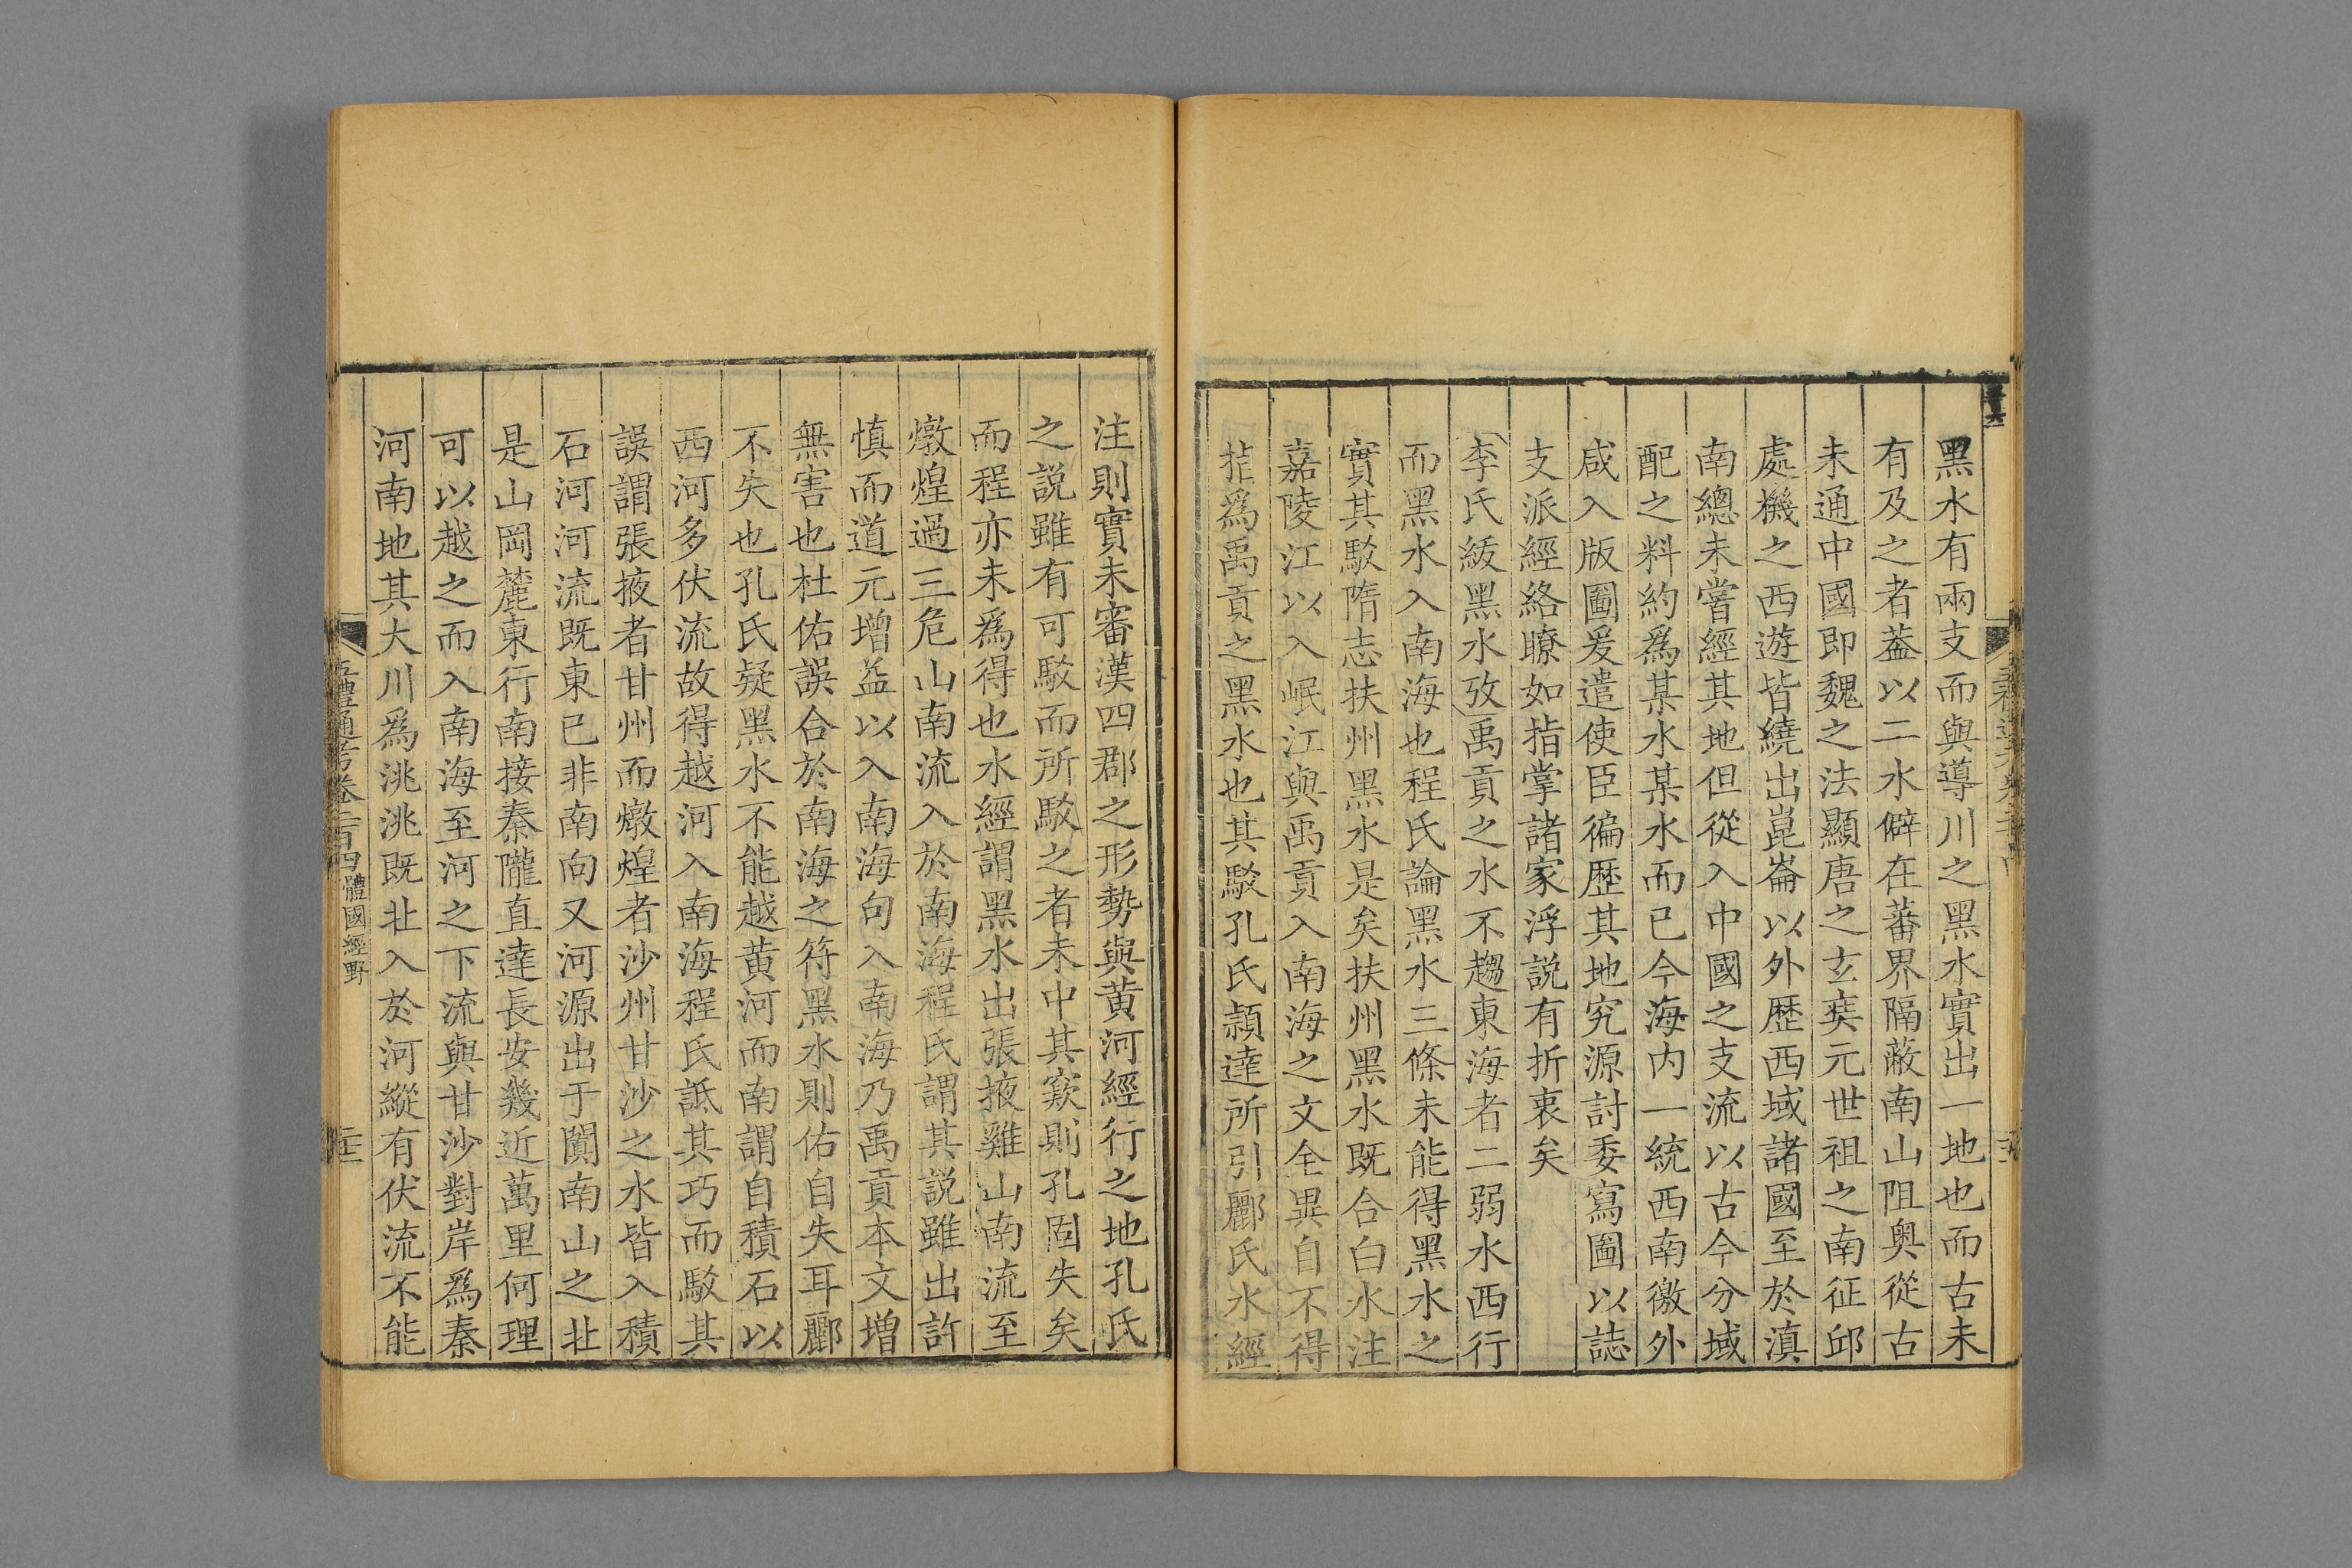 黑水有兩支而與導川之黑水實出一地也而古未
有及之者葢以二水僻在蕃界隔蔽南山阻奥從古
未通中國即魏之法顯唐之玄奘元世祖之南征邱
處機之西遊皆繞出崑崙以外歷西域諸國至於滇
南總未嘗經其地但從入中國之支流以古今分域
配之料約爲某水某水而已今海内一統西南徼外
咸入版圖爰遣使臣徧歷其地究源討委寫圖以誌
支派經絡瞭如指掌諸家浮説有折衷矣
李氏紱黑水攷禹貢之水不趨東海者二弱水西行
而黑水入南海也程氏論黑水三條未能得黑水之
實其駁隋志扶州黑水是矣扶州黑水既合白水注
嘉陵江以入岷江與禹貢入南海之文全異自不得
指爲禹貢之黑水也其駁孔氏頴達所引酈氏水經
注則實未審漢四郡之形勢與黄河經行之地孔氏
之説雖有可駁而所駁之者未中其窾則孔固失矣
而程亦未爲得也水經謂黑水出張掖雞山南流至
燉煌過三危山南流入於南海程氏謂其説雖出許
慎而道元增益以入南海句入南海乃禹貢本文增
無害也杜佑誤合於南海之符黑水則佑自失耳酈
不失也孔氏疑黑水不能越黄河而南謂自積石以
西河多伏流故得越河入南海程氏詆其巧而駁其
誤謂張掖者甘州而燉煌者沙州甘沙之水皆入積
石河河流既東已非南向又河源出于闐南山之北
是山岡麓東行南接秦隴直達長安幾近萬里何理
可以越之而入南海至河之下流與甘沙對岸爲秦
河南地其大川爲洮洮既北入於河縱有伏流不能
五禮通考卷二百四 體國經野